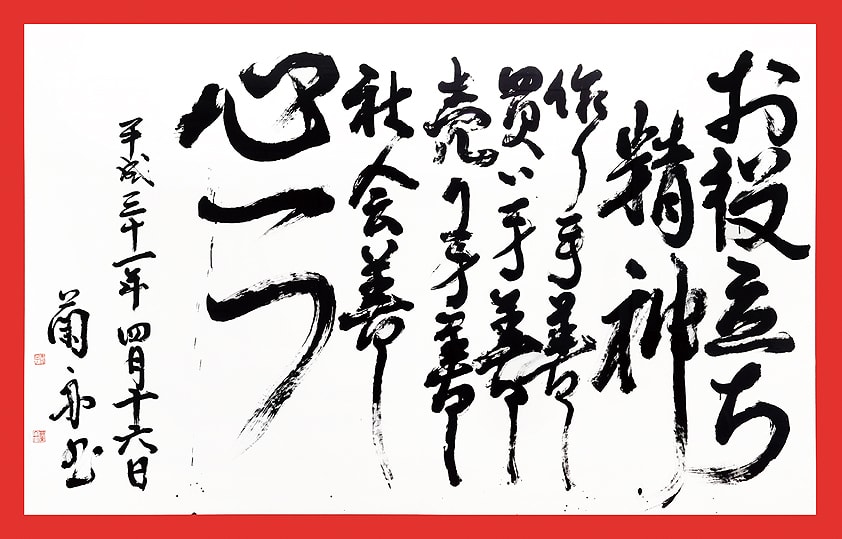 お役立ち
精神
作り手善
買い手善
売り手善
社会善
心一つ
平成三十一年 四月十六日